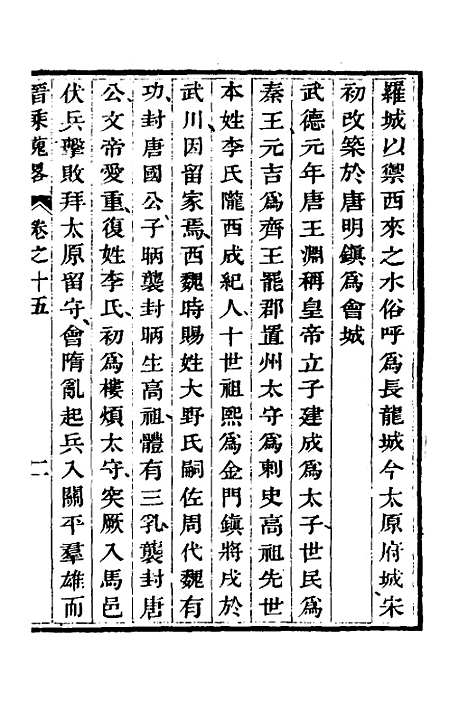 羅城以禦西來之水俗呼爲長龍城今太原府城宋
初改築於唐明鎭爲會城
武德元年唐王淵稱皇帝立子建成爲太子世民爲
秦王元吉爲齊王罷郡置州太守爲刺史高祖先世
本姓李氏隴西成紀人十世祖熙爲金門鎭將戍於
武川因留家焉西魏時賜姓大野氏嗣佐周代魏有
功封唐國公子昞襲封昞生高祖體有三乳襲封唐
公文帝愛重復姓李氏初爲樓煩太守突厥入馬邑
伏兵擊敗拜太原留守會隋亂起兵入關平羣雄而
晉乘蒐畧 卷之十五 二